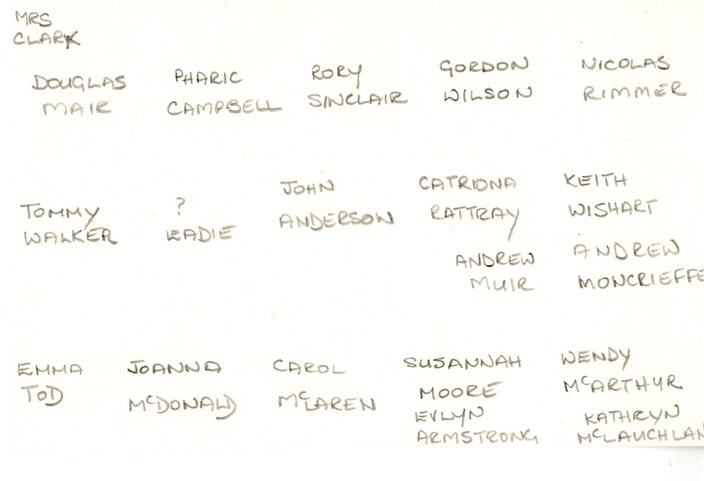 MRS
CLARK
DOUGLAS PHARIC RORY GORDON NICOLAS
MAIR CAMPBELL SINCLAIR WILSON RIMMER
JOHN CATRIONA KEITH
TOMMY ? ANDERSON RATTRAY WISHART
WALKER EADIE
ANDREW ANDREW
MUIR MONCRIEFFE
EMMA JOANNA CAROL SUSANNAH WENDY
TOD McDONALD McLAREN MOORE McARTHUR
EVLYN KATHRYN
ARMSTRONG McLAUCHLAN